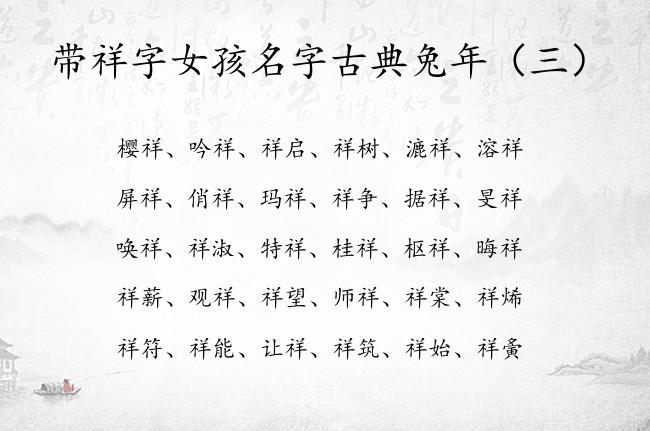 带祥字女孩名字古典兔年（三）
樱祥、吟祥、祥启、祥树、漉祥、溶祥
屏祥、俏祥、玛祥、祥争、据祥、旻祥
唤祥、祥淑、特祥、桂祥、枢祥、晦祥
祥薪、观祥、祥望、师祥、祥棠、祥烯
祥符、祥能、让祥、祥筑、祥始、祥夤